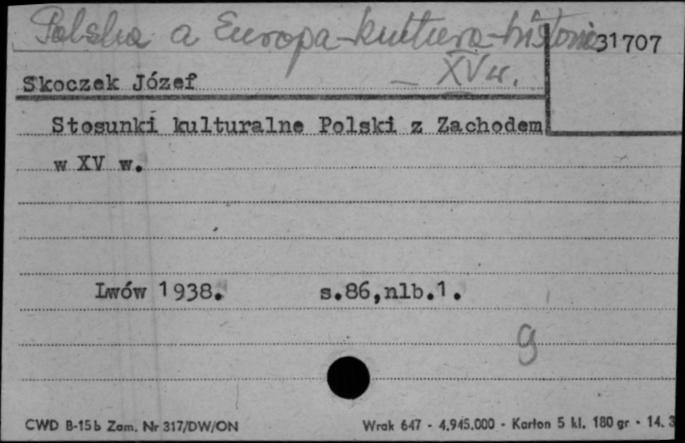 Polska a Europa - kultura - historia
31707
Skoczek Józef
- XV w.
Stosunki kulturalne Polski z Zachodem
w XV w.
Lwów 1938. s.86,nlb.1.
g
CWD B-15b Zam. Nr 317/DW/ON Wrak 647 - 4.945.000 - Karton 5 kl. 180 gr - 14. 3